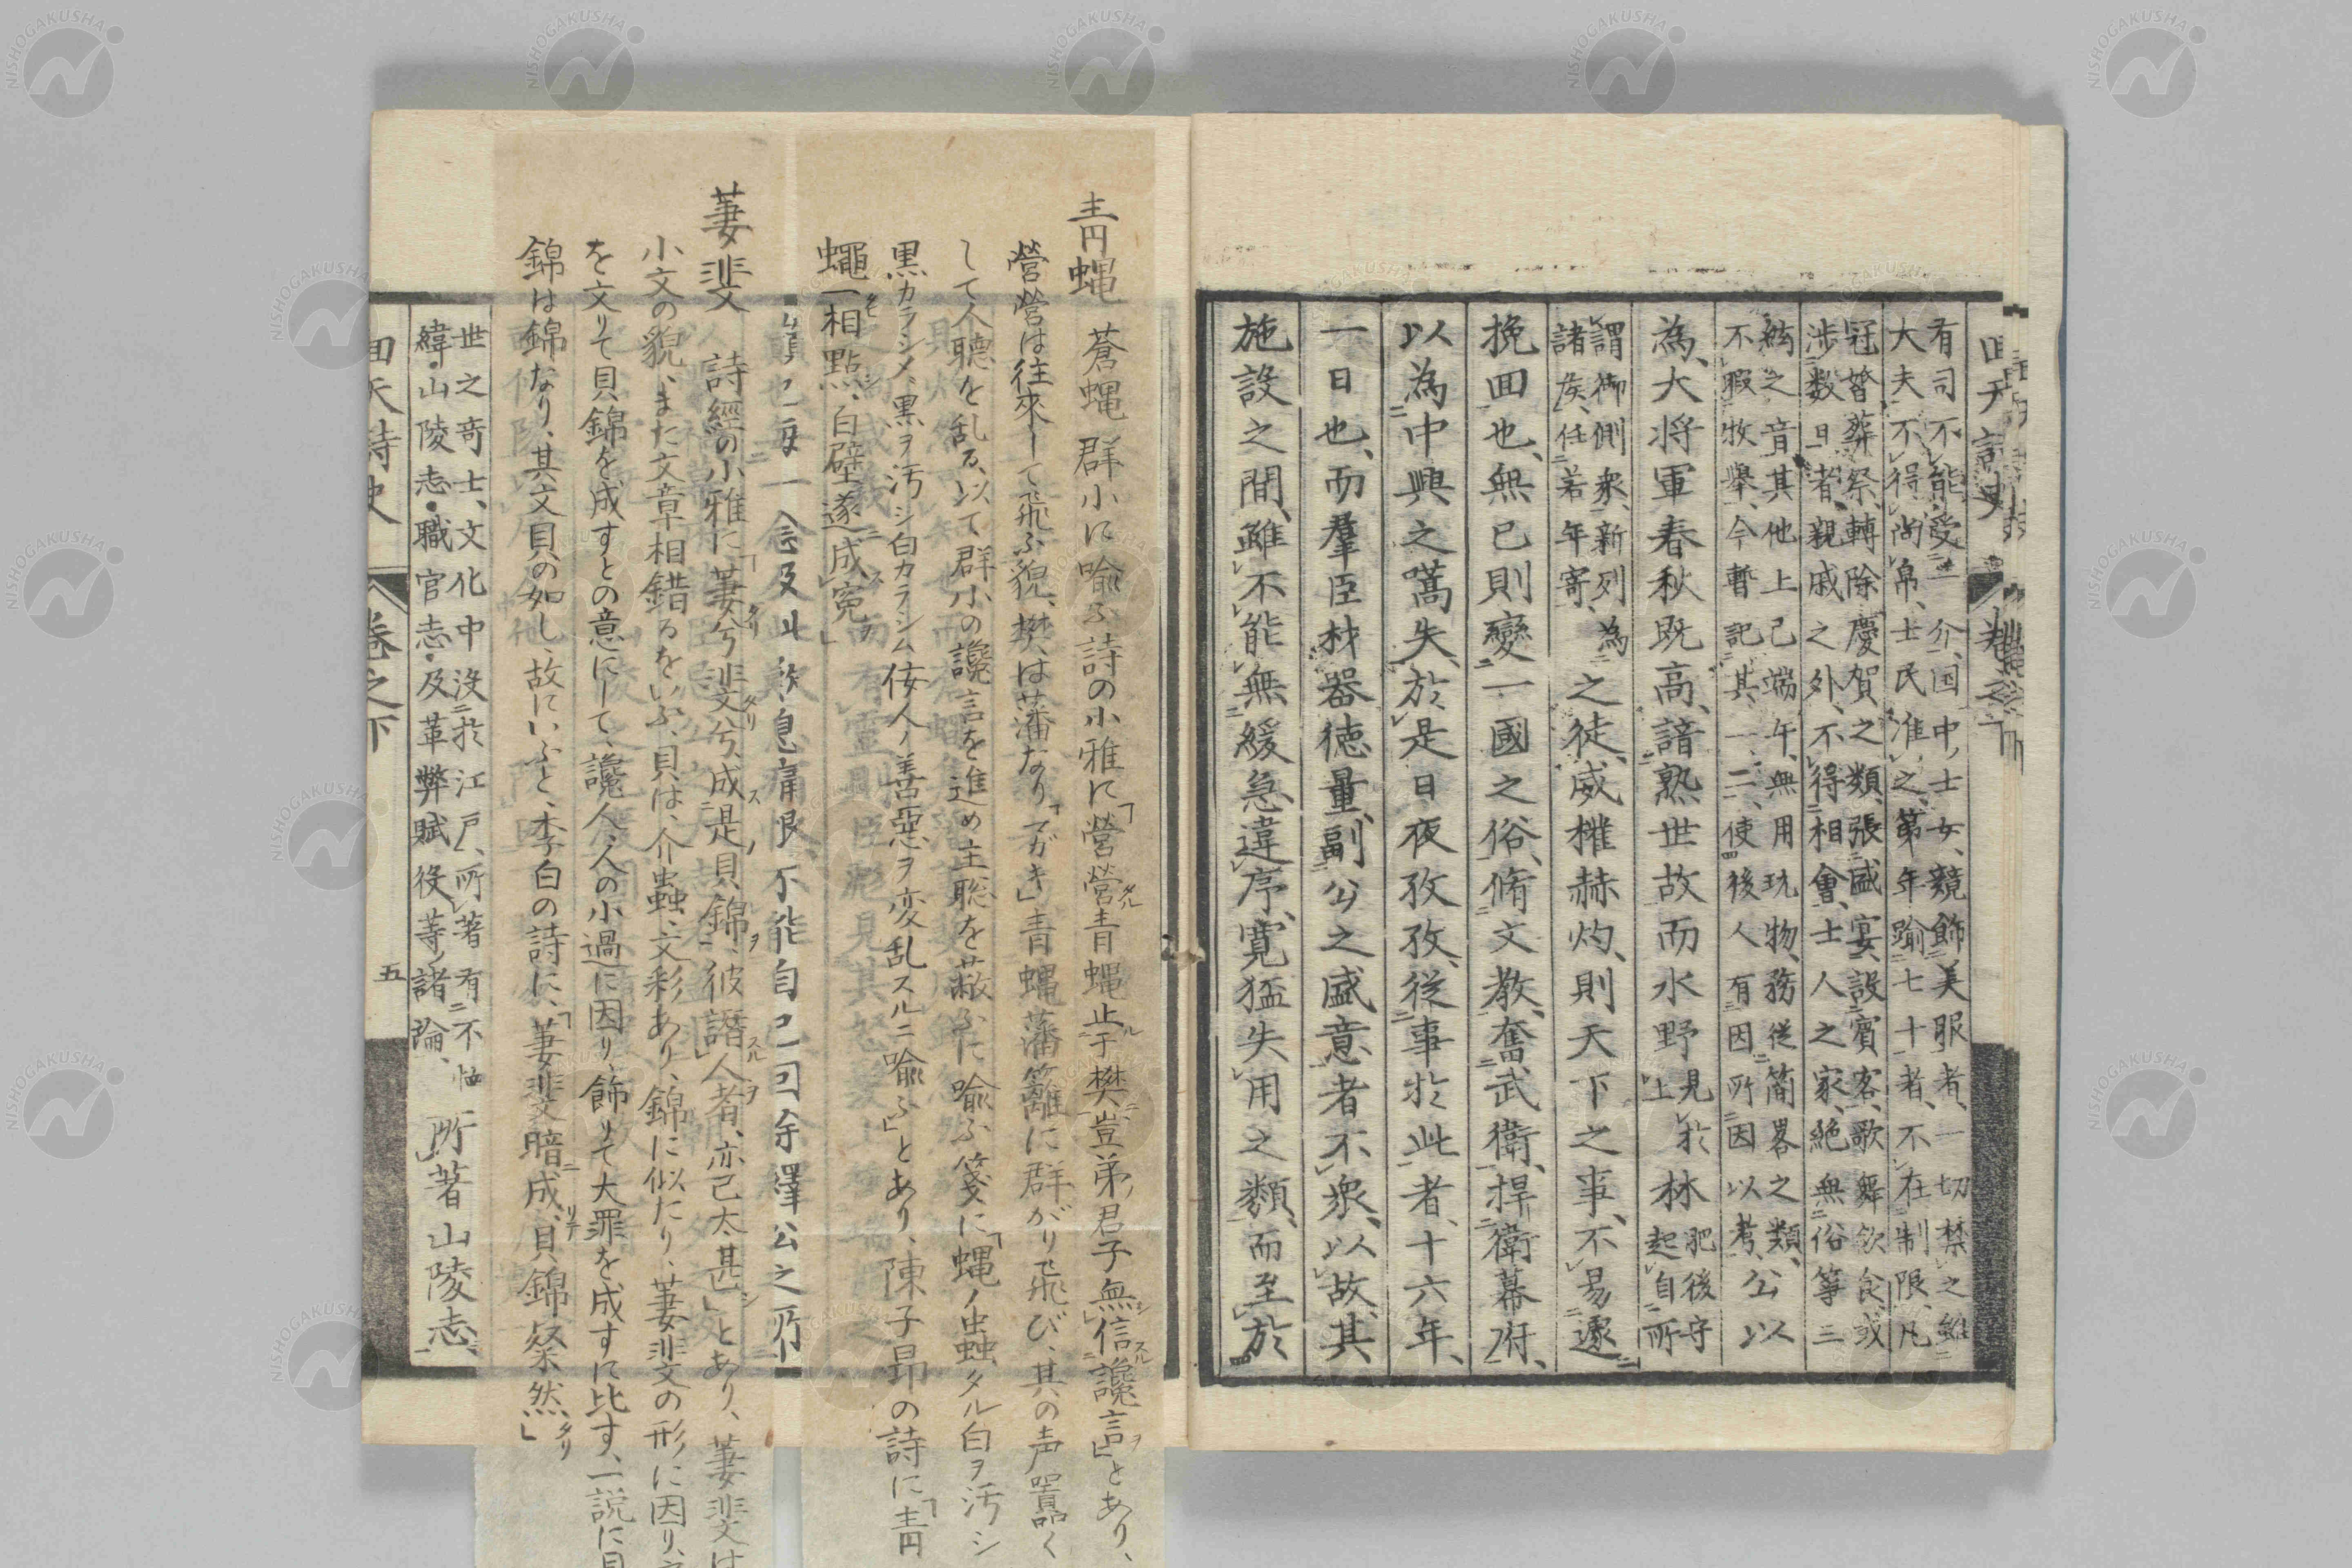 有司不能受一介、国中士女、競飾美服者、一切禁之、雖
大夫不得尚帛、士民准之、第年踰七十者、不在制限、凡
冠昏葬祭、轉除慶賀之類、張盛宴、設賓客、歌舞飲食、或
渉数日者、親戚之外、不得相會、士人之家、絶無俗箏三
絃之音、其他上己端午、無用玩物、務従簡畧之類、
不暇牧舉、今暫記其一二、使後人有因所因以考、公以
為、大将軍春秋既高、諳熟世故、而水野見於林肥後守
上起自所
謂御側衆、新列為
諸侯、任若年寄、之徒、威権赫灼、則天下之事、不易遽
挽回也、無已則變一國之俗、脩文教、奮武衛、捍衛幕府、
以為中興之嚆矢、於是日夜孜孜、従事於此者、十六年、
一日也、而羣臣材器徳量、副公之盛意者不衆、以故其
施設之間、雖不能無緩急違序、寛猛失用之類、而至於
青蝿 蒼蝿 群小に喩ふ詩の小雅に「營營青蝿止于樊、豈弟君子無信讒言」とあり、
營營は往來して飛ふ貌、樊は藩なり「マガキ」青蝿藩籬に群がり飛び、其の声囂く
して人聴を乱る、以て群小の讒言を進め主聡を蔽ふに喩ふ箋に「蝿ノ虫蟲タル白ヲ汚シ
黒カラシメ、黒ヲ汚シ白カラシム佞人ノ善惡ヲ変乱スルニ喩ふ」とあり、陳子昻の詩に「青
蠅一相點、白璧遂成寃」
萋斐 詩經の小雅に「萋兮斐兮、成是貝錦、彼譖人者、亦已太甚」とあり、萋斐は
小文の貌、また文章相錯るをいふ、貝は、介蟲、文彩あり、錦に似たり、萋斐の形に因り、
を文りて貝錦を成すとの意にして、讒人、人の小過に因り、飾りて大罪を成すに比す、一説に貝
錦は錦なり、其文貝の如し、故にいふと、李白の詩に、「萋斐暗成、貝錦粲然、」
毎一念及此、歎息痛恨、不能自已、回餘繹公之所
世之奇士、文化中沒於江戸、所著有不恤
緯・山陵志・職官志・及革弊賦役等諸論、所著山陵志
回天詩史 卷之下 五